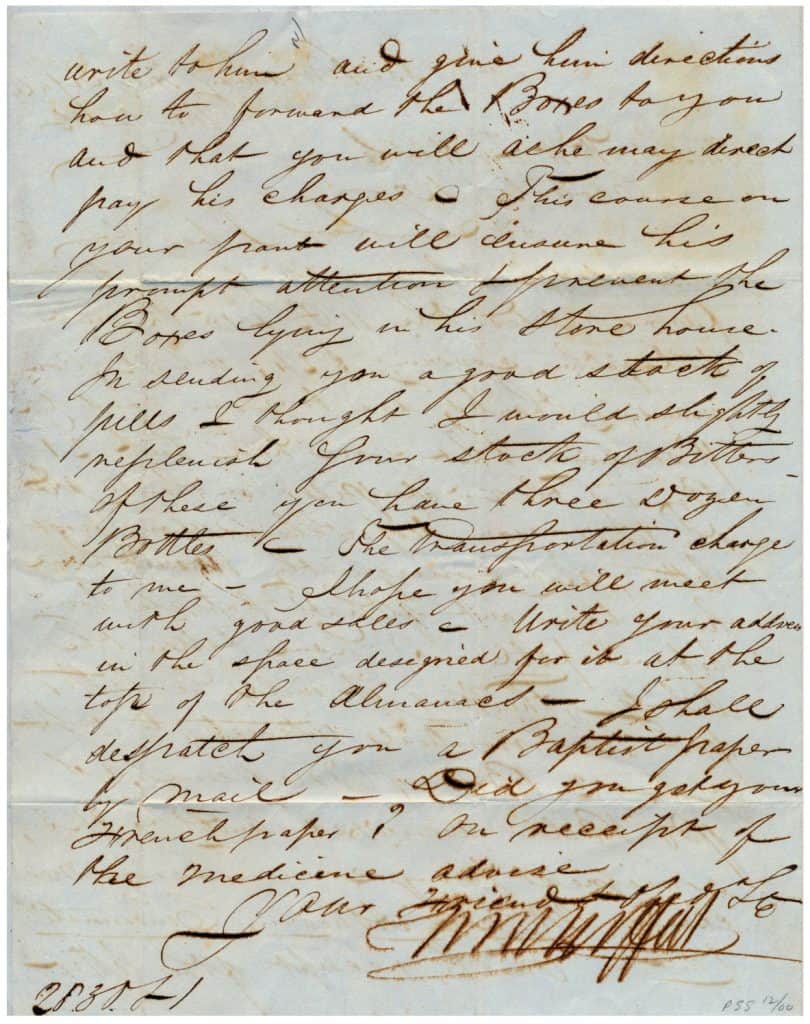 write to him and give him directions
how to forward the Boxes to you
and that you will as he may direct
pay his charges – This course on
your part will ensure his
prompt attention & prevent the
Boxes lying in his store house.
In sending you a good stock of
pills I thought I would slightly
replenish your stock of Bitters –
of these you have three Dozen
Bottles – The transportation charge
to me – I hope you will meet
with good sales – Write your address
in the space designed for it at the
top of the Almanacs – I shall
despatch you a Baptist paper
by mail – Did you get your
French paper? On receipt of
the medicine advise
Your Friend
PSS 12/00